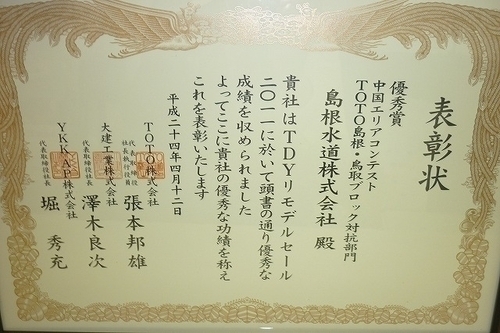 表彰状
優秀賞
中国エリアコンテスト
TOTO島根・鳥取ブロック対抗部門
島根水道株式会社 殿
貴社はTDYリモデルセール
二〇一一に於いて頭書の通り優秀な
成績を収められました
よってここに貴社の優秀な功績を称え
これを表彰いたします
平成二十四年四月十二日
TOTO株式会社
代表取締役
社長執行役員
張本邦雄
大建工業株式会社
代表取締役社長
澤木良次
YKKAP株式会社
代表取締役社長
堀 秀充